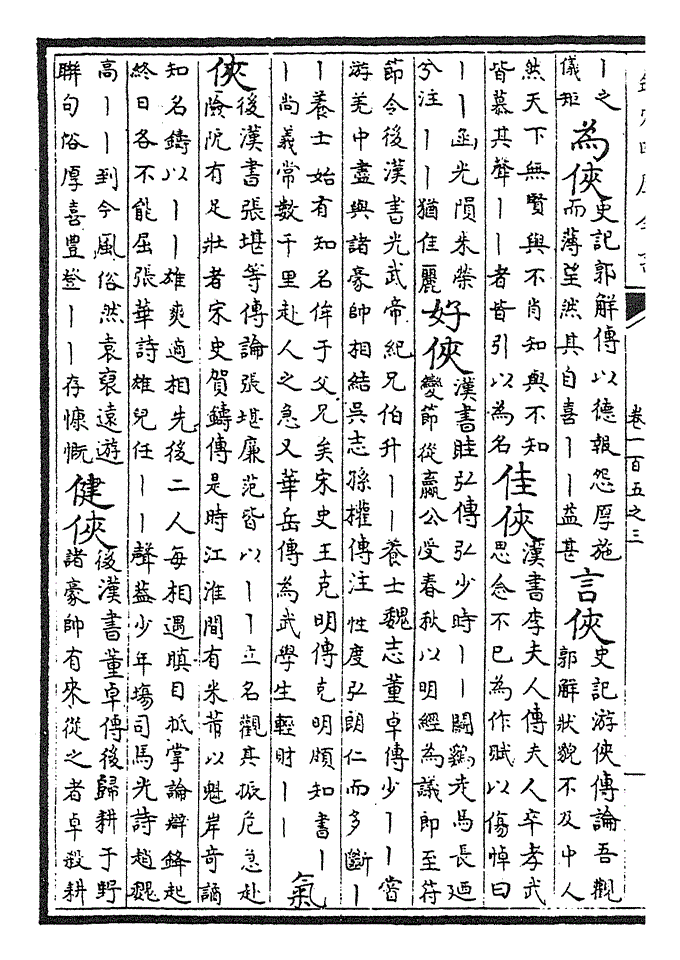 卷一百五之三
｜之儀矩 為俠 史記郭解傳以德報怨厚施而薄望然其自喜｜｜益甚 言俠 史記游俠傳論吾觀郭解狀貌不及中人
然天下無賢與不肖知與不知皆慕其聲｜｜者皆引以為名 佳俠 漢書李夫人傳夫人卒孝武思念不已為作賦以傷悼曰
｜｜函光隕朱榮兮注｜｜猶佳麗 好俠 漢書眭弘傳弘少時｜｜鬭鷄走馬長廼變節從嬴公受春秋以明經為議郎至符
節令後漢書光武帝紀兄伯升｜｜養士魏志董卓傳少｜｜嘗游羌中盡與諸豪帥相結吳志孫權傳注性度弘朗仁而多斷｜
｜養士始有知名侔于父兄矣宋史王克明傳克明頗知書｜｜尚義常數千里赴人之急又華岳傳為武學生輕財｜｜ 氣
俠 後漢書張堪等傳論張堪廉范皆以｜｜立名觀其振危急赴險阨有足壯者宋史賀鑄傳是時江淮間有米芾以魁岸奇譎
知名鑄以｜｜雄爽適相先後二人每相遇瞋目抵掌論辯鋒起終日各不能屈張華詩雄兒任｜｜聲蓋少年塲司馬光詩趙魏
高｜｜到今風俗然袁裒遠遊聯句俗厚喜豊登｜｜存慷慨 健俠 後漢書董卓傳後歸耕于野諸豪帥有來從之者卓殺耕